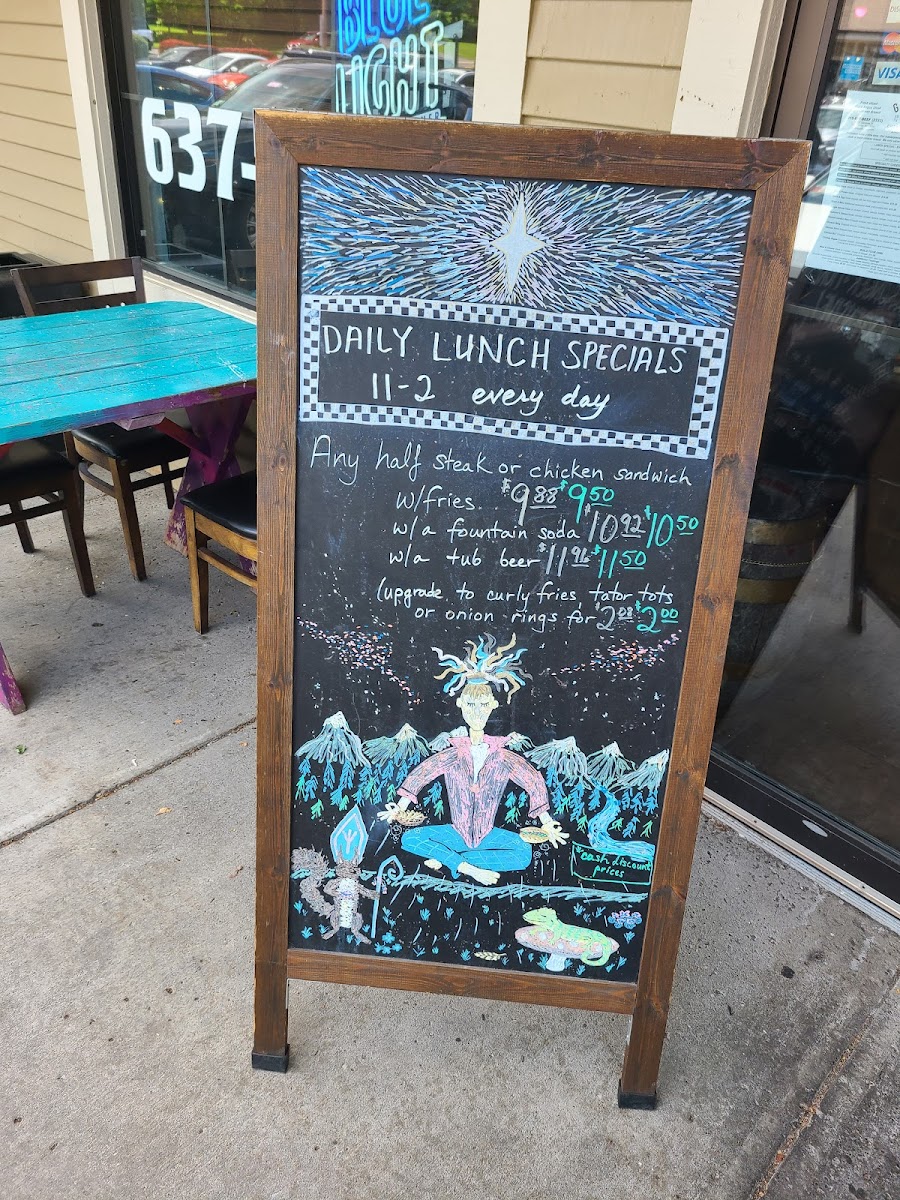 BLUE
LIGHT
637-
VISA
DAILY LUNCH SPECIALS
11-2 every day
Any half steak or chicken sandwich
w/fries $9.88 $9.50
w/a fountain soda $10.92 $10.50
w/a tub beer $11.96 $11.50
(upgrade to curly fries tator tots
or onion rings for $2.08 $2.00
*cash discount
prices